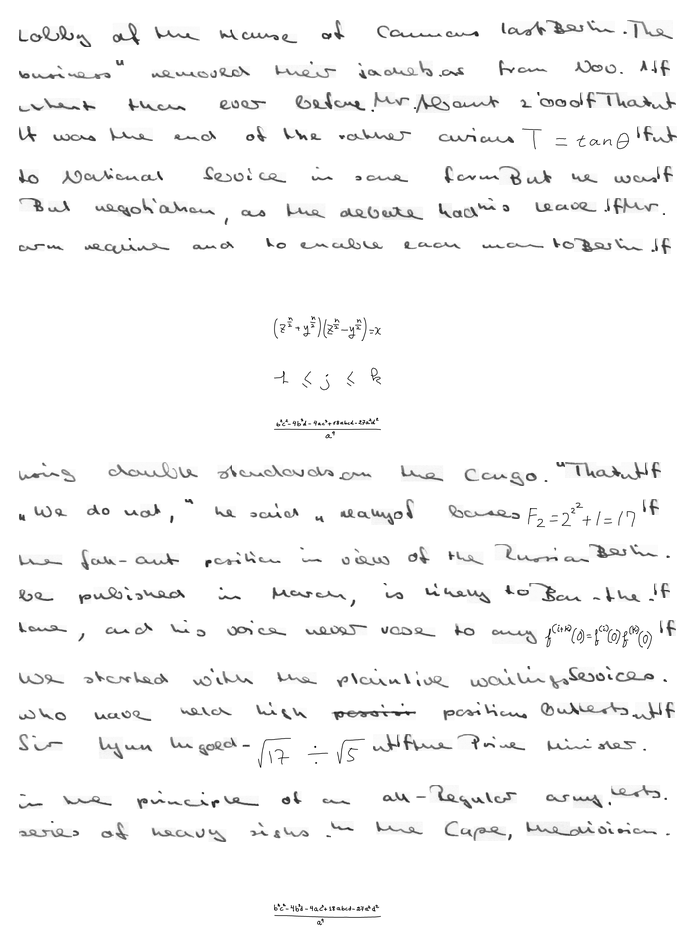 Lobby of the House of Commons last Berlin. The
business" removed their jackets. as from Nov. 1. If
intent than ever before. Mr. About 2'000 If That
It was the end of the rather curious T = tanθ If
to National Service in some form But he was If
But negotiation, as the debate had his leave. If Mr.
arm require and to enable each man to Berlin. If
(z^{n/2} + y^{n/2})(z^{n/2} - y^{n/2}) = x
1 ≤ j ≤ k
(b²c² - 4b³d - 4ac³ + 18abcd - 27a²d²) / a⁴
using double standards. on the Congo. "That If
"We do not," he said " many of bases F₂ = 2^{2^2} + 1 = 17 If
the fall-out position in view of the Russian Berlin.
be published in March, is likely to Ban-the. If
tone, and his voice never rose to any f^{(i+k)}(0) = f^{(i)}(0) f^{(k)}(0) If
We started with the plaintive wailings Services.
who have held high positions But tests. If
Sir Lynn Ungoed- √17 ÷ √5 If the Prime Minister.
in the principle of an all-Regular army. tests.
series of heavy risks. In the Cape, the division.
(b²c² - 4b³d - 4ac³ + 18abcd - 27a²d²) / a⁴